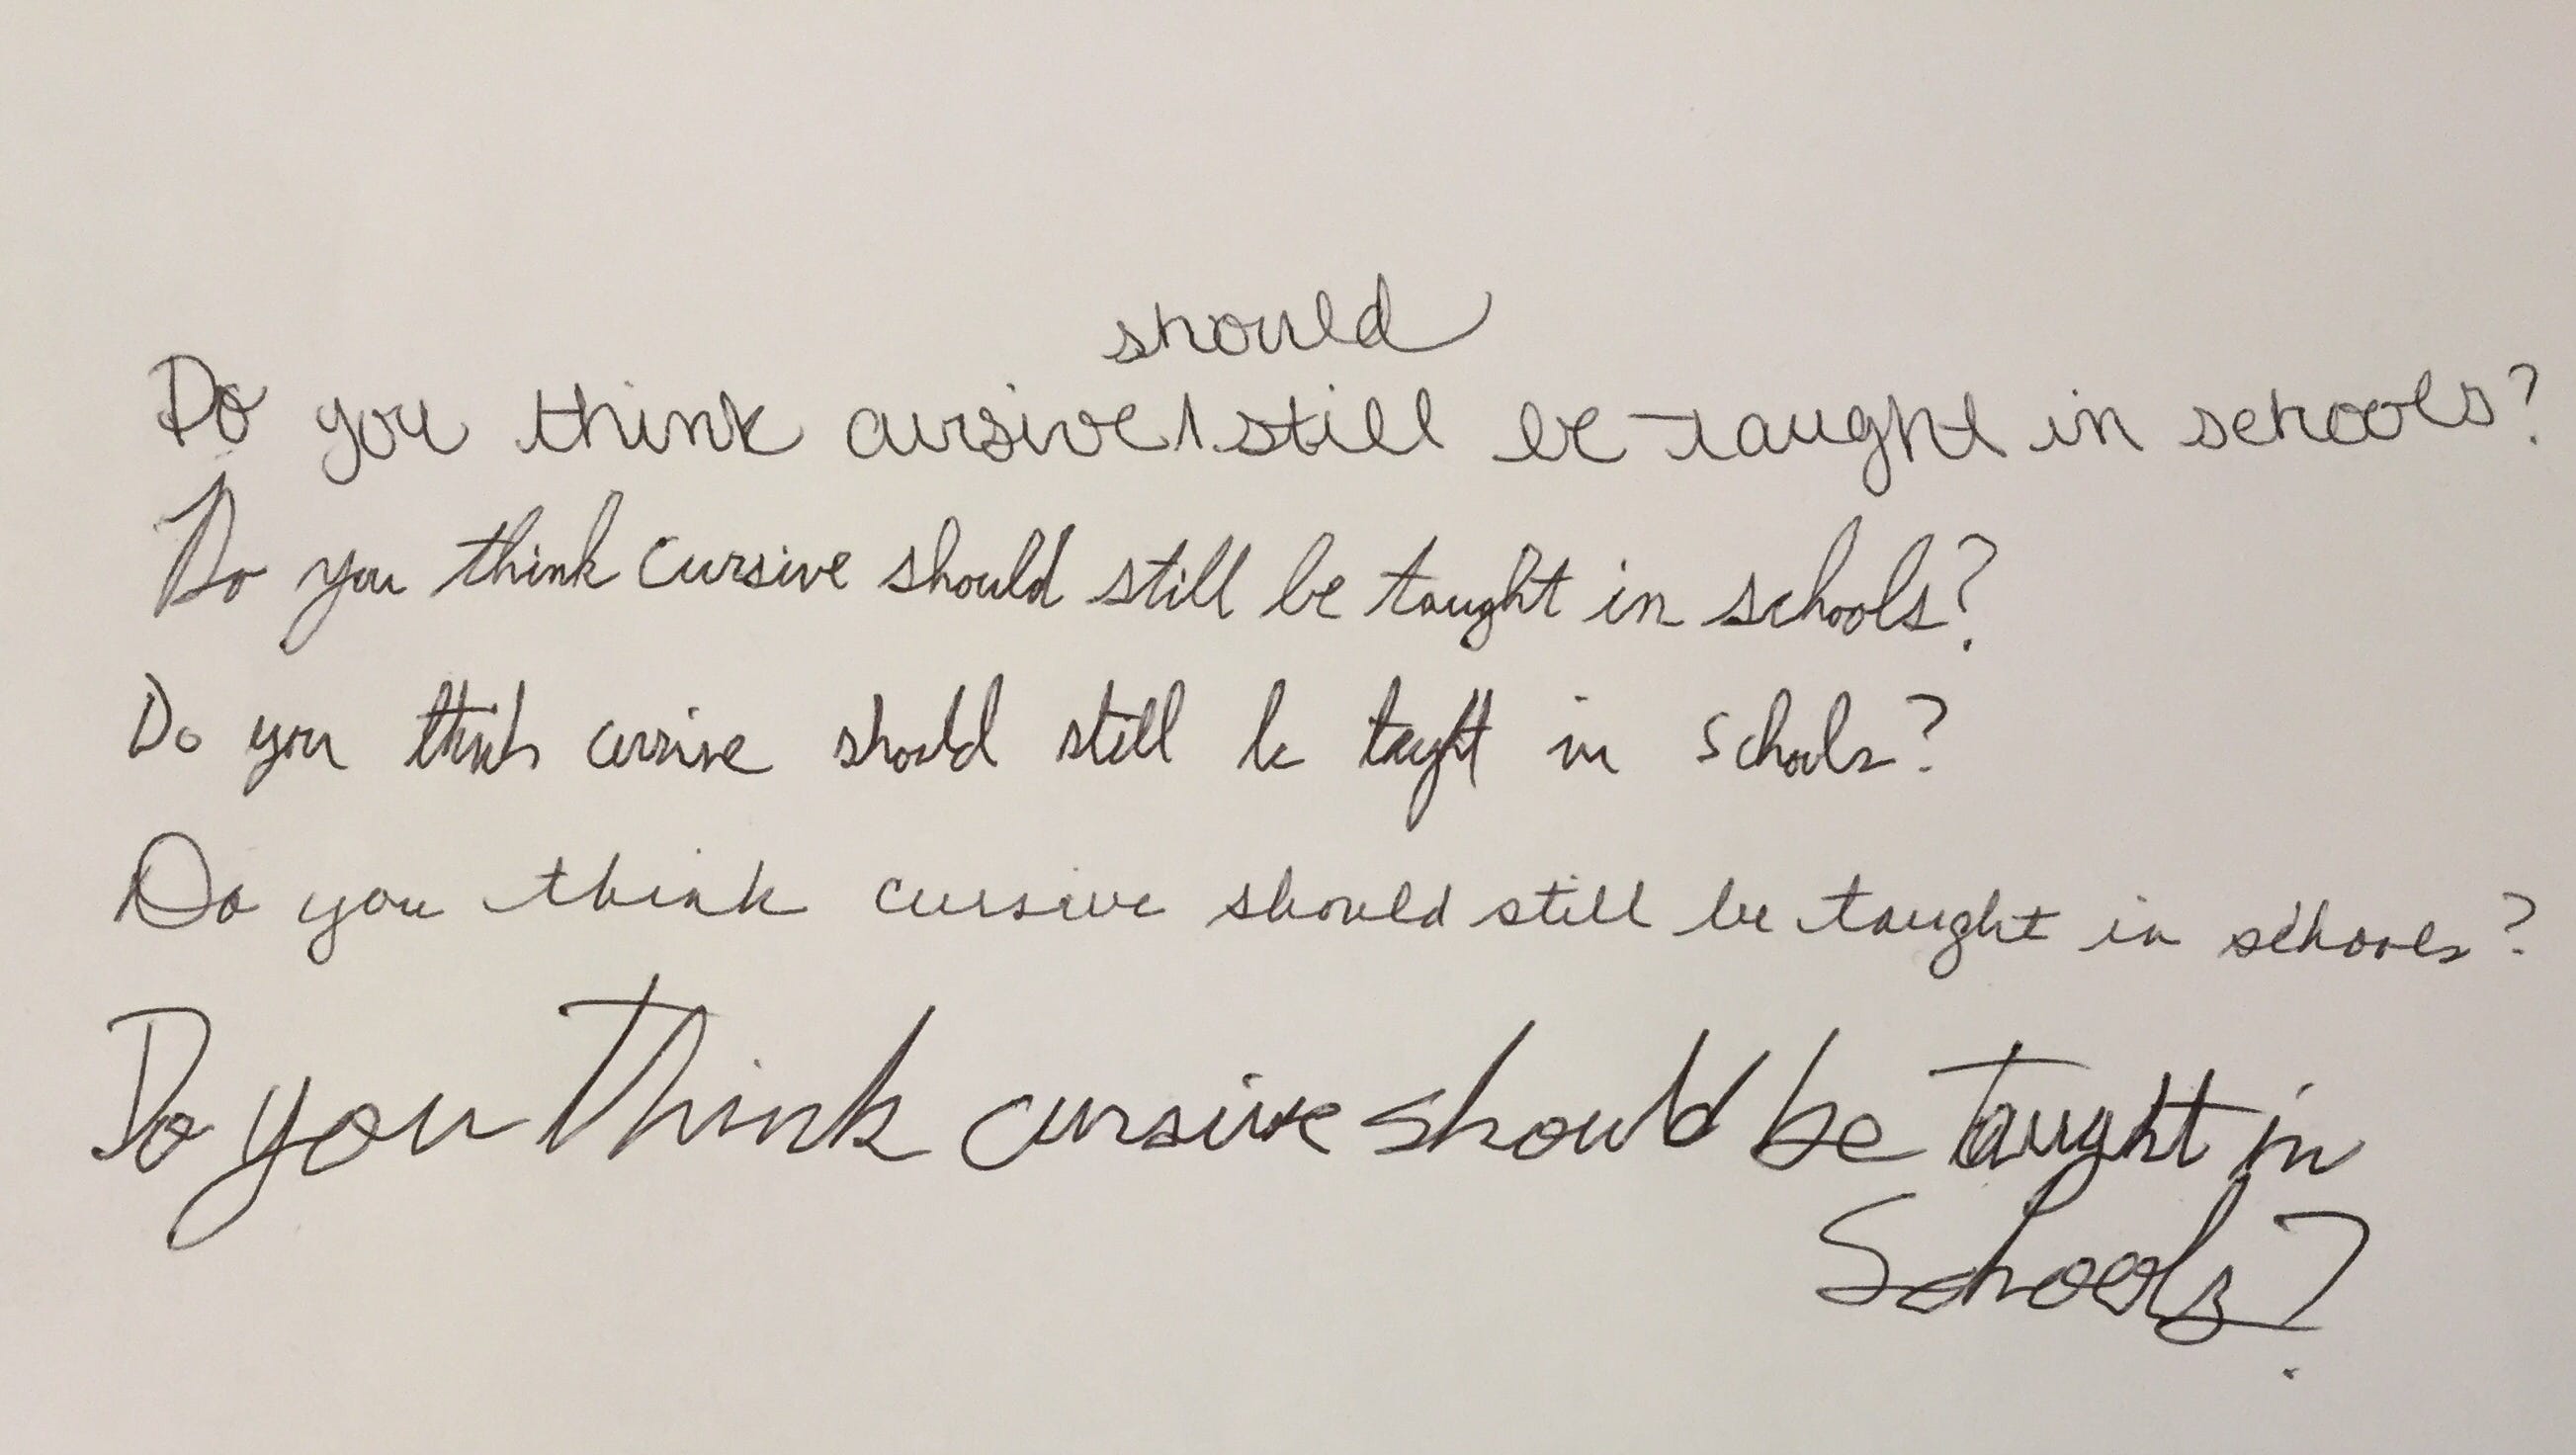 should
Do you think cursive ∧ still be taught in schools?
Do you think cursive should still be taught in schools?
Do you think cursive should still be taught in schools?
Do you think cursive should still be taught in schools?
Do you think cursive should be taught in
schools?